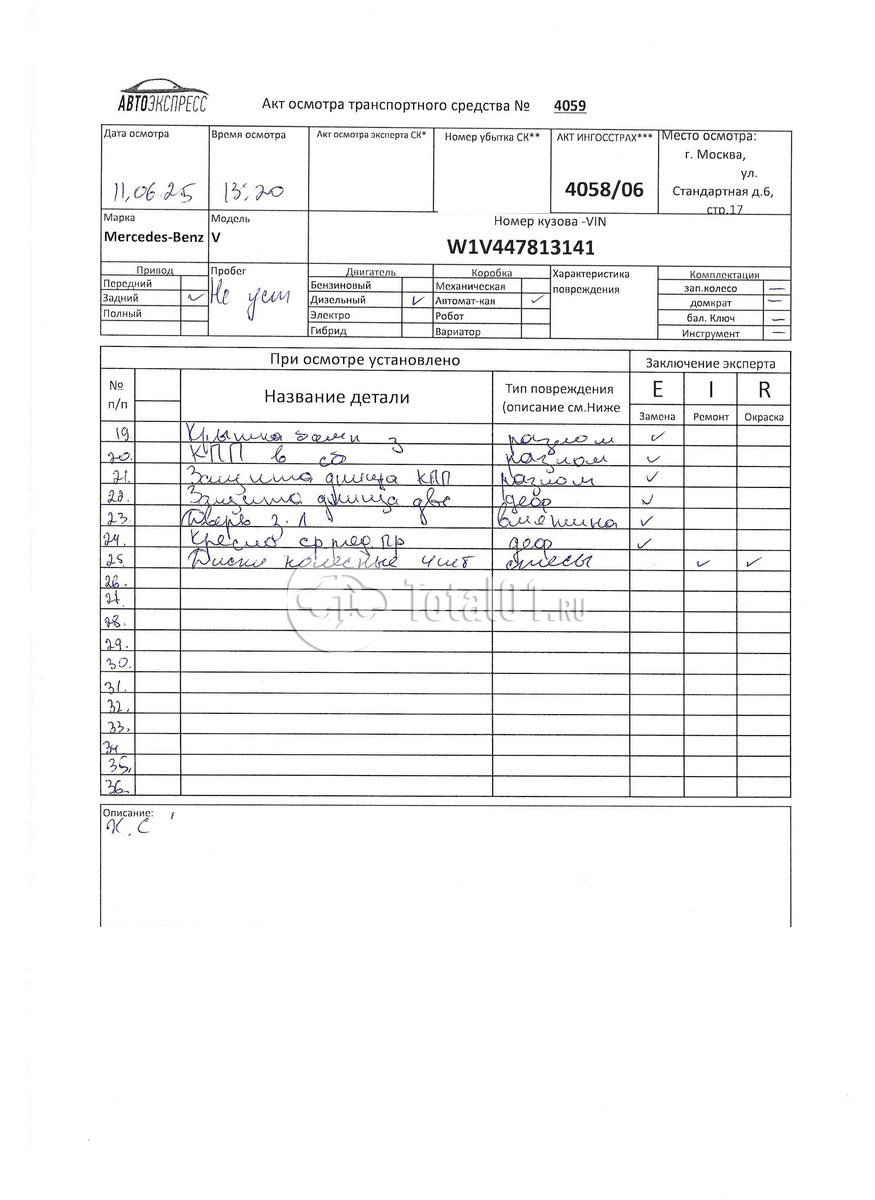 АВТОЭКСПРЕСС
Акт осмотра транспортного средства № 4059
Дата осмотра
Время осмотра
Акт осмотра эксперта СК*
Номер убытка СК**
АКТ ИНГОССТРАХ***
Место осмотра:
г. Москва,
ул.
Стандартная д.6,
стр.17
11,06.25
13:20
4058/06
Марка
Модель
Номер кузова -VIN
Mercedes-Benz
V
W1V447813141
Привод
Пробег
Двигатель
Коробка
Характеристика
повреждения
Комплектация
Передний
Бензиновый
Механическая
зап.колесо —
Задний ✓
Не уст
Дизельный ✓
Автомат-кая ✓
домкрат —
Полный
Электро
Робот
бал. Ключ —
Гибрид
Вариатор
Инструмент —
При осмотре установлено
Заключение эксперта
№
п/п
Название детали
Тип повреждения
(описание см.Ниже
E I R
Замена Ремонт Окраска
19 Крышка з разлом ✓
20. КПП в сб разлом ✓
21. Защита днища КПП разлом ✓
22. Защита днища двс деф ✓
23 Дверь з.л вмятина ✓
24. Кресло ср ряд пр деф ✓
25 Диски колесные 4шт срезы ✓ ✓
26.
27.
28.
29.
30.
31.
32.
33.
34
35.
36.
Total01.RU
Описание:
Х.С